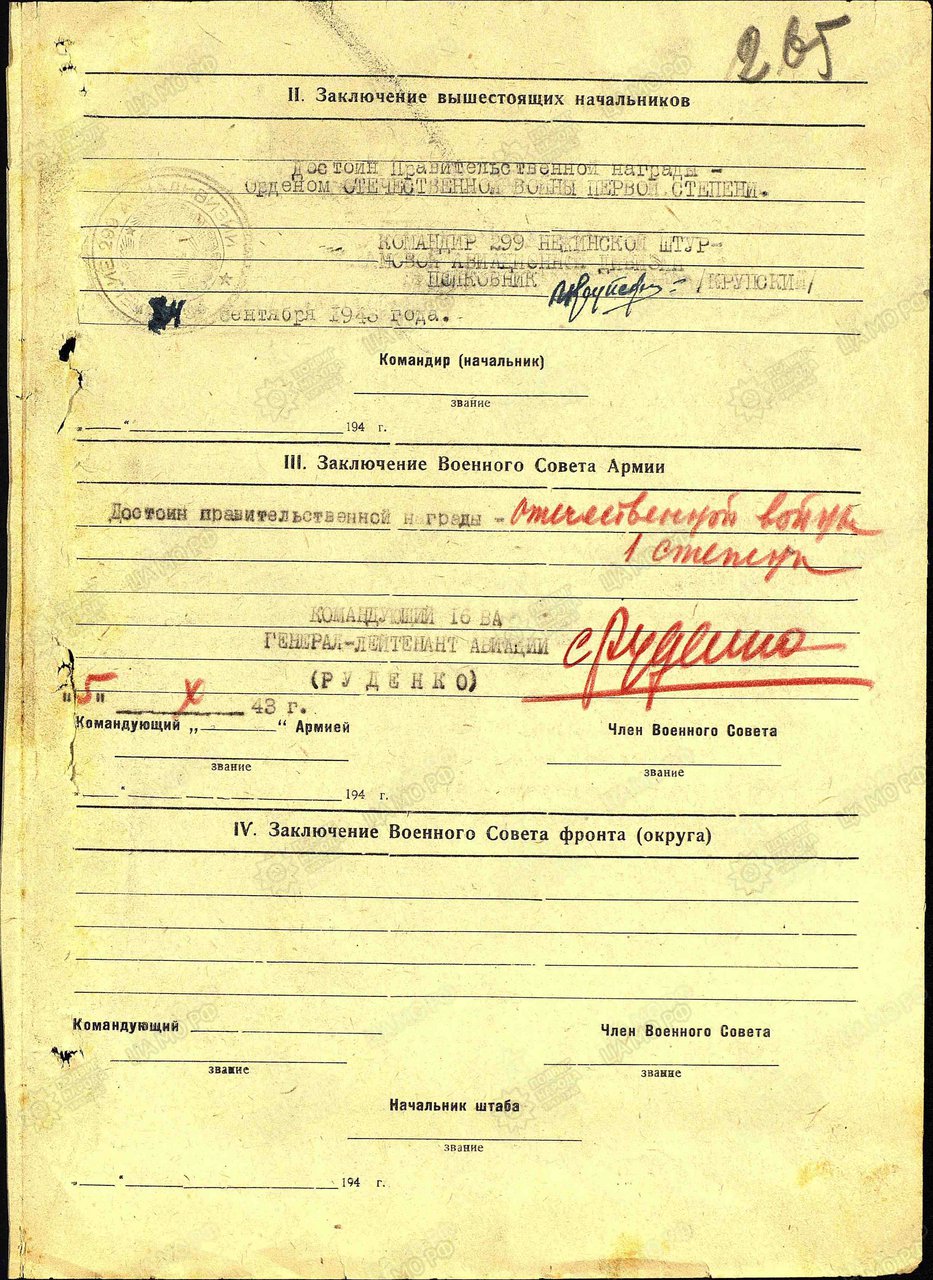 265
II. Заключение вышестоящих начальников
Достоин Правительственной награды –
Орденом ОТЕЧЕСТВЕННОЙ ВОЙНЫ ПЕРВОЙ СТЕПЕНИ.
КОМАНДИР 299 НЕЖИНСКОЙ ШТУР-
МОВОЙ АВИАЦИОННОЙ ДИВИЗИИ
ПОЛКОВНИК /КРУПСКИЙ/
сентября 1943 года.
Командир (начальник)
звание
„ “ 194 г.
III. Заключение Военного Совета Армии
Достоин правительственной награды – Отечественной войны
1 степени
КОМАНДУЮЩИЙ 16 ВА
ГЕНЕРАЛ-ЛЕЙТЕНАНТ АВИАЦИИ С Руденко
(РУДЕНКО)
"5" X 43 г.
Командующий „ “ Армией Член Военного Совета
звание звание
„ “ 194 г.
IV. Заключение Военного Совета фронта (округа)
Командующий Член Военного Совета
звание звание
Начальник штаба
звание
„ “ 194 г.